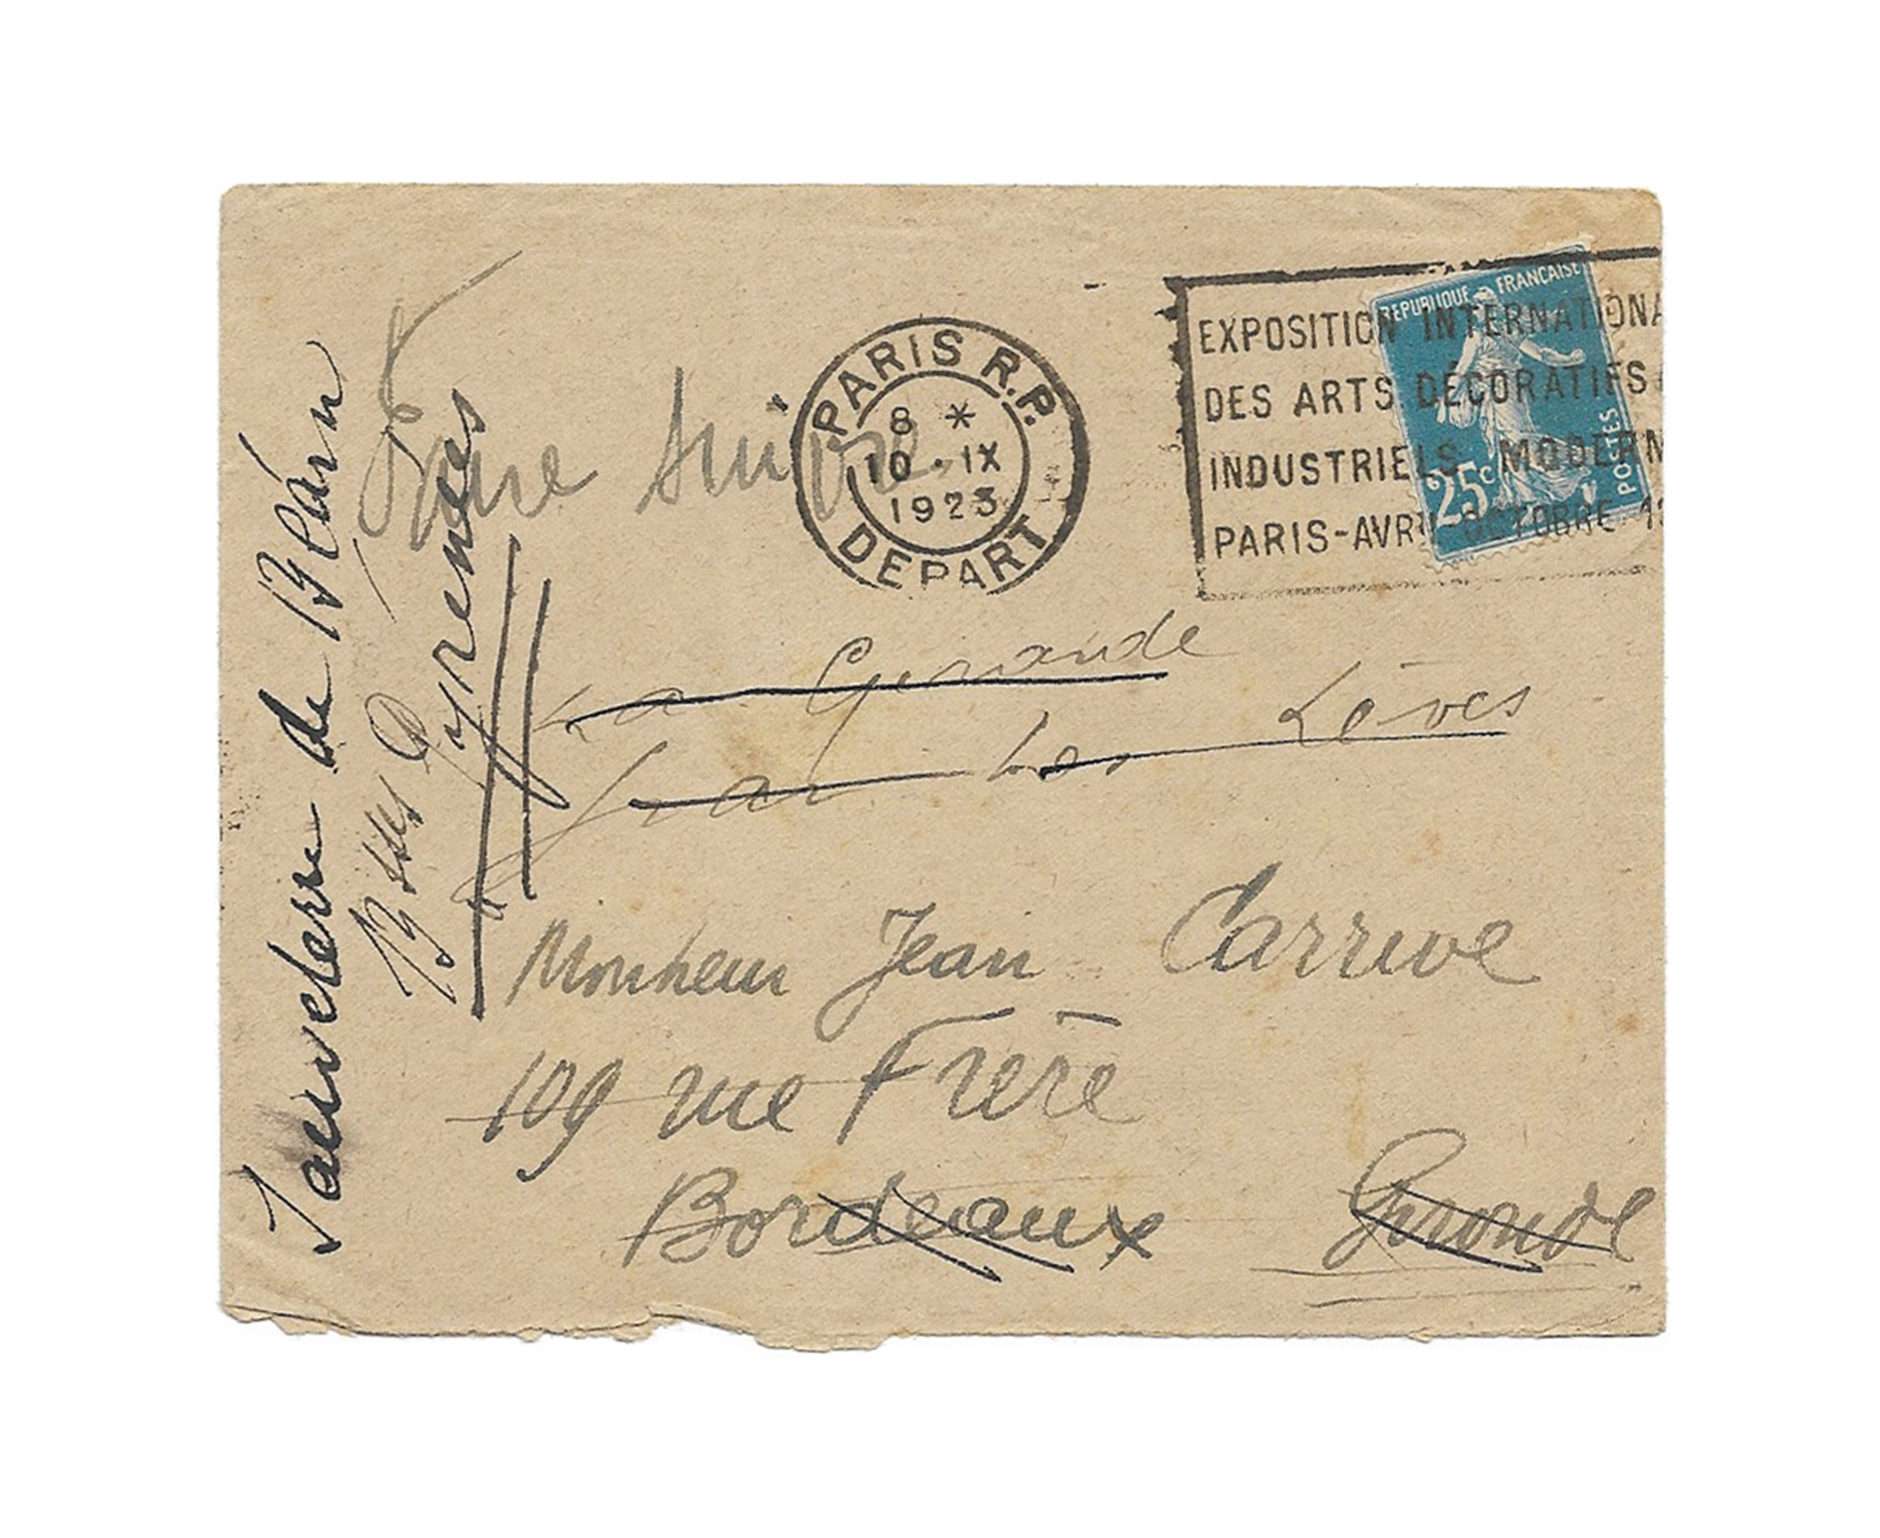 Faire suivre
PARIS R.P.
8 *
10 · IX
1923
DEPART
EXPOSITION INTERNATIONA
DES ARTS DÉCORATIFS
INDUSTRIELS MODERN
PARIS-AVRIL OCTOBRE 19
REPUBLIQUE FRANÇAISE
25c
POSTES
La Gironde
par Les Lèves
Monsieur Jean Carrive
109 rue Frère
Bordeaux Gironde
Sauveterre de Béarn
Basses Pyrénées